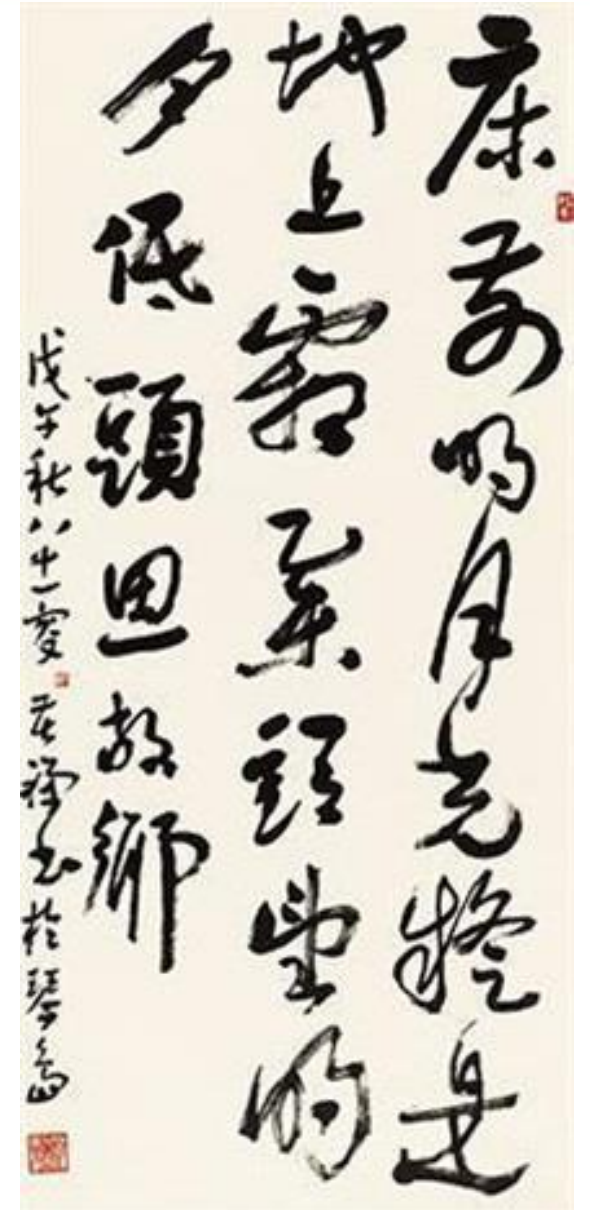 床前明月光疑是
地上霜舉頭望明
月低頭思故鄉
戊午秋八十一叟 書於琴島